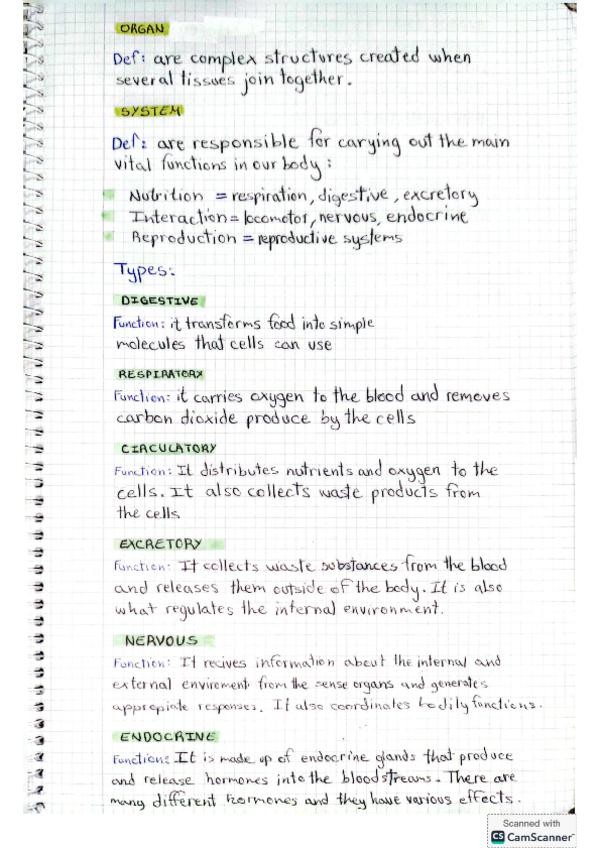 ORGAN
Def: are complex structures created when
several tissues join together.
SYSTEM
Def: are responsible for carying out the main
vital functions in our body:
Nutrition = respiration, digestive, excretory
Interaction = locomotor, nervous, endocrine
Reproduction = reproductive systems
Types:
DIGESTIVE
Function: it transforms food into simple
molecules that cells can use
RESPIRATORY
Function: it carries oxygen to the blood and removes
carbon dioxide produce by the cells
CIRCULATORY
Function: It distributes nutrients and oxygen to the
cells. It also collects waste products from
the cells
EXCRETORY
Function: It collects waste substances from the blood
and releases them outside of the body. It is also
what regulates the internal environment.
NERVOUS
Function: It recives information about the internal and
external envirement from the sense organs and generates
appropiate responses. It also coordinates bodily functions.
ENDOCRINE
Function: It is made up of endocrine glands that produce
and release hormones into the bloodstreams. There are
many different hormones and they have various effects.
Scanned with
CS CamScanner